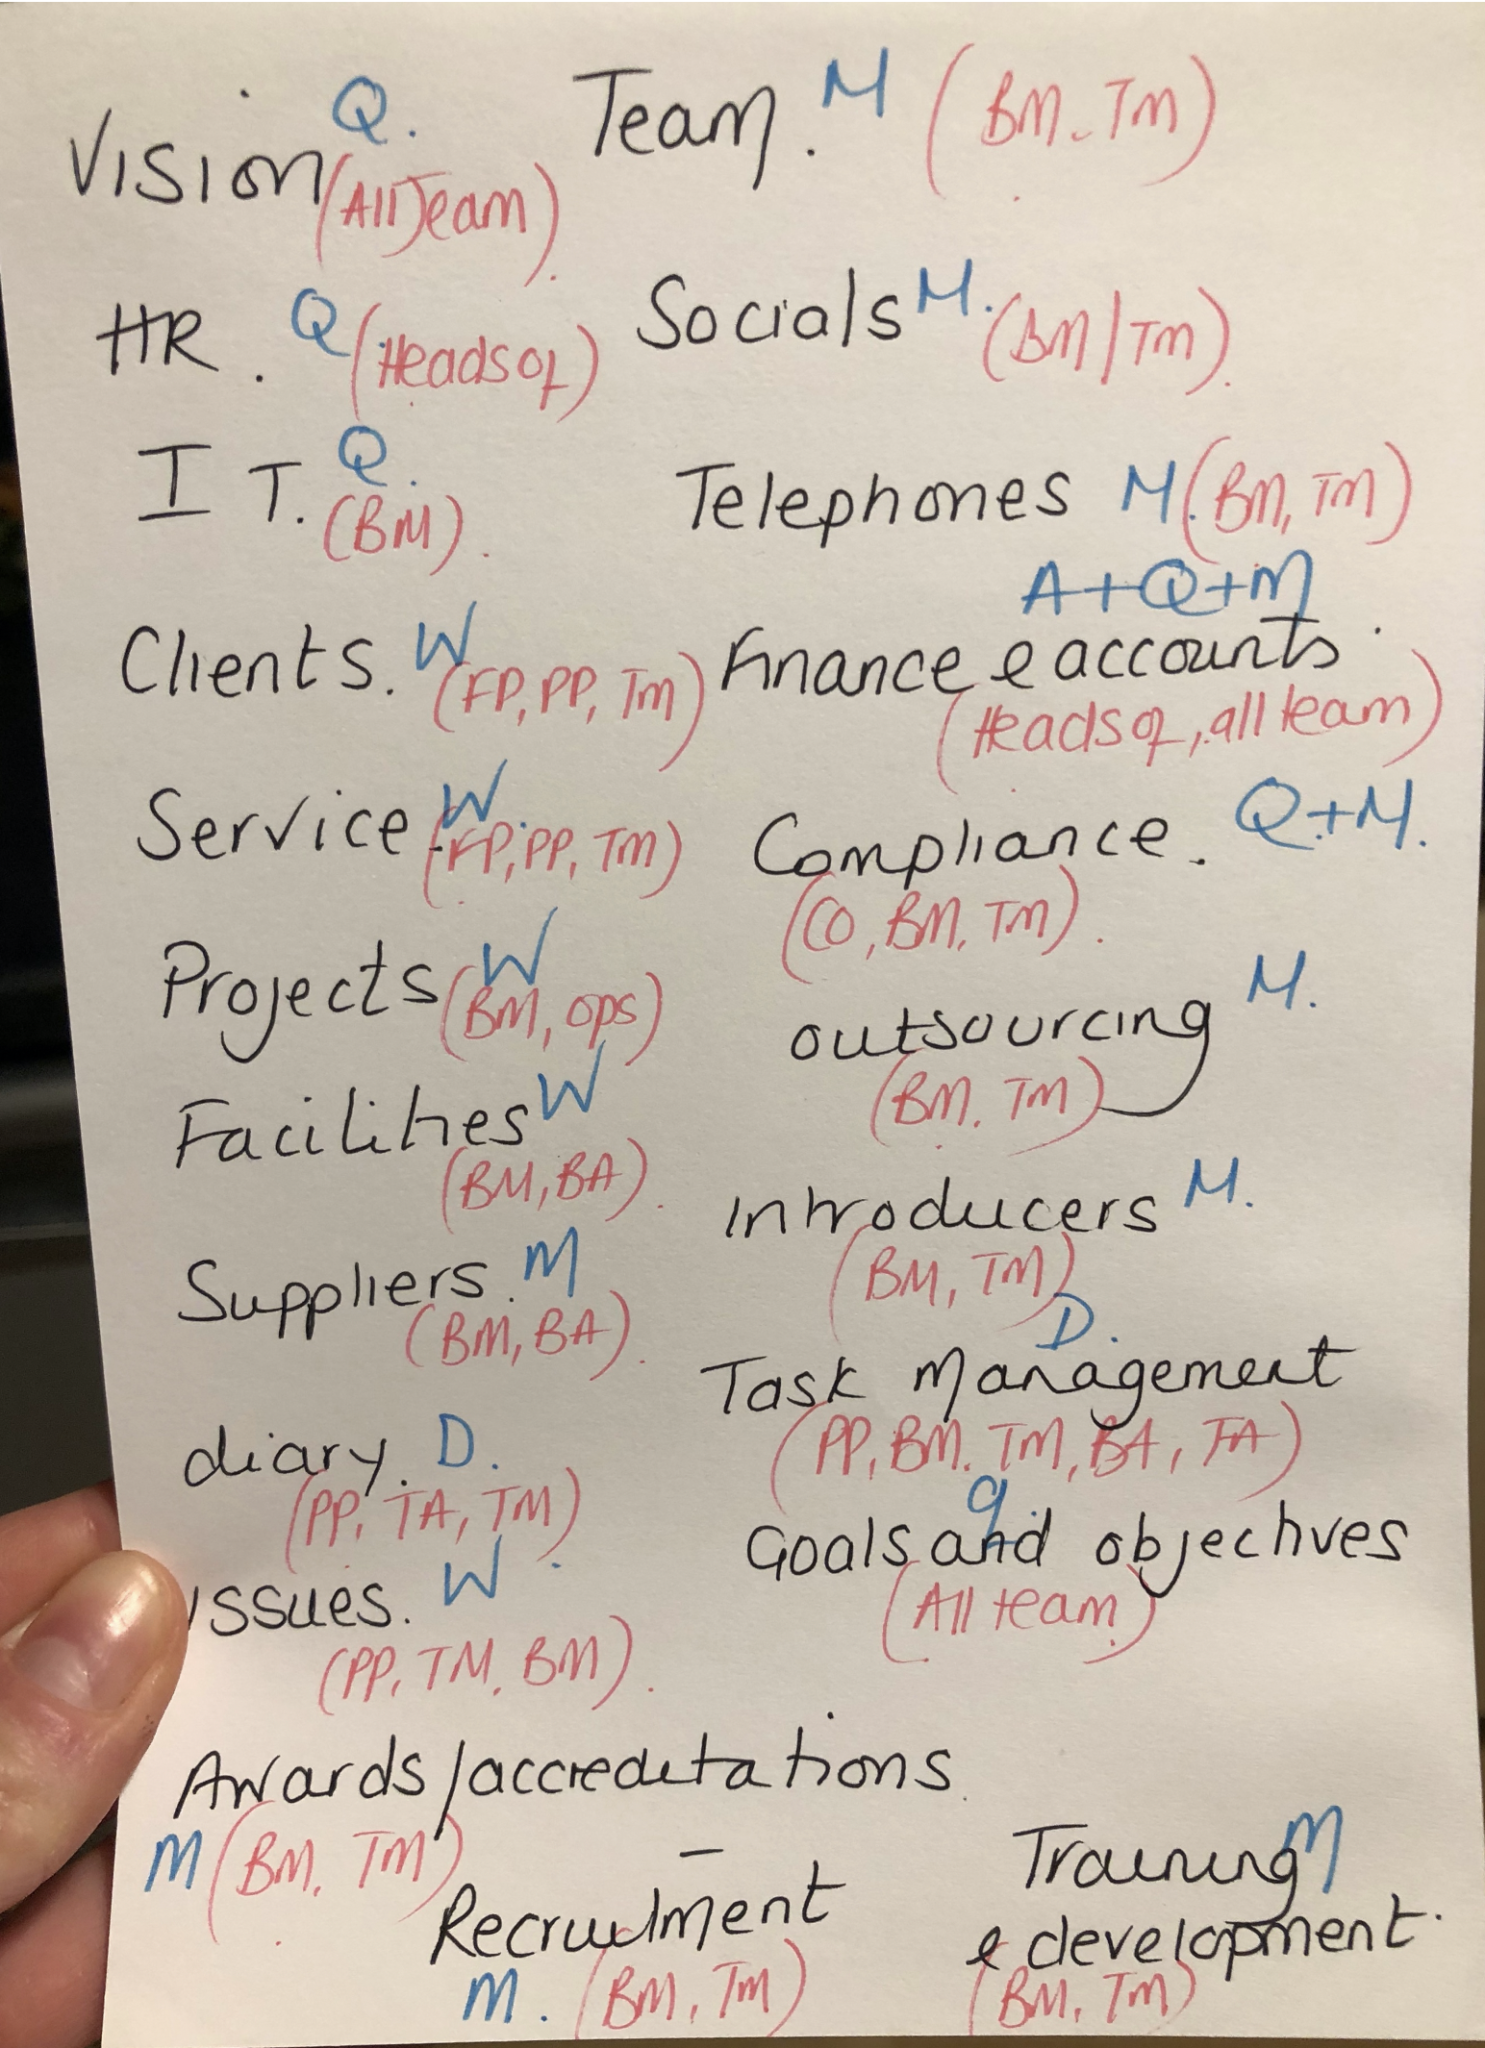 Vision Q.
(All Team)
Team. M (BM. TM)
HR. Q (Heads of)
Socials M. (BM/TM).
I T. Q.
(BM).
Telephones M. (BM, TM)
Clients. W
(FP, PP, TM)
A+Q+M
Finance & accounts.
(Heads of, all team)
Service W.
(FP, PP, TM)
Compliance. Q+M.
(CO, BM, TM).
Projects W
(BM, OPS)
outsourcing M.
(BM. TM)
Facilities W
(BM, BA).
Introducers M.
(BM, TM)
Suppliers. M
(BM, BA).
D.
Task Management
(PP, BM. TM, BA, TA)
diary. D.
(PP, TA, TM)
q.
Goals and objectives
(All team)
issues. W
(PP, TM, BM).
Awards/accreditations
M (BM, TM)
Recruitment
M. (BM, TM)
Training M
& development.
(BM, TM)